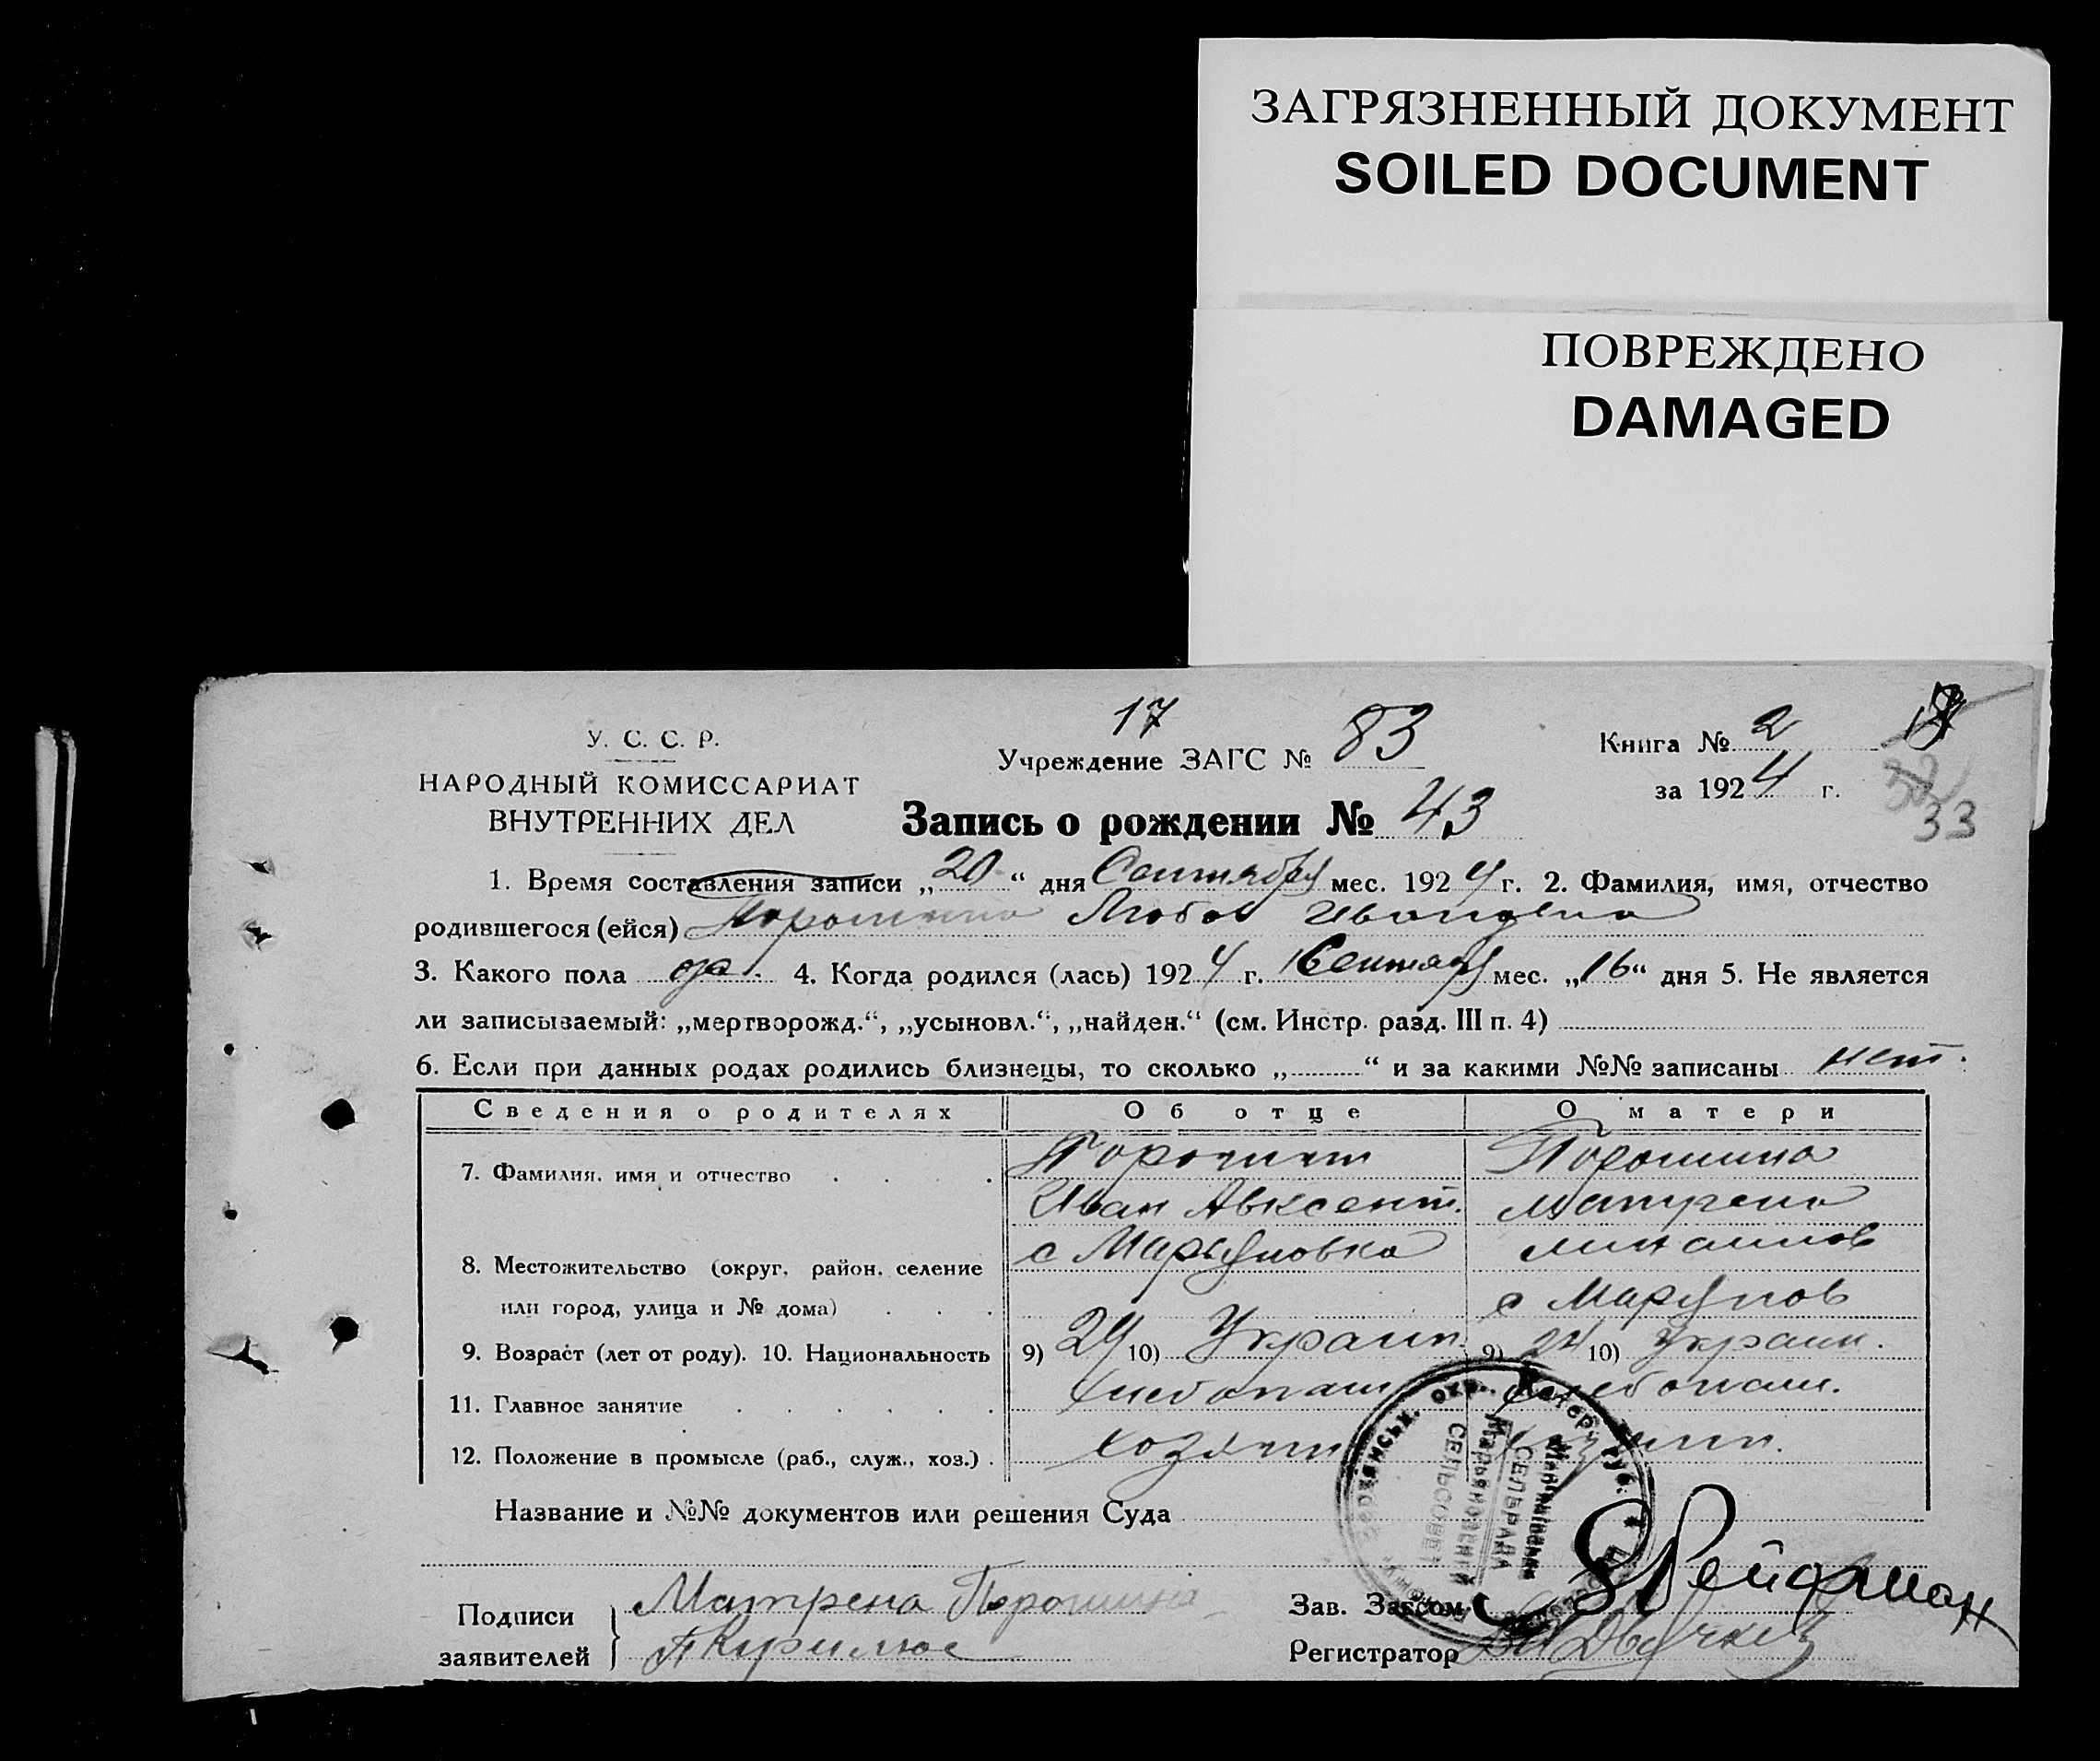 ЗАГРЯЗНЕННЫЙ ДОКУМЕНТ
SOILED DOCUMENT
ПОВРЕЖДЕНО
DAMAGED
У. С. С. Р.
НАРОДНЫЙ КОМИССАРИАТ
ВНУТРЕННИХ ДЕЛ
17
Учреждение ЗАГС № 83
Книга № 2
за 1924 г.
33
Запись о рождении № 43
1. Время составления записи „20“ дня Сентября мес. 1924 г. 2. Фамилия, имя, отчество
родившегося (ейся) Порошина Любов Ивановна
3. Какого пола 4. Когда родился (лась) 1924 г. Сентября мес. „16“ дня 5. Не является
ли записываемый: „мертворожд.“, „усыновл.“, „найден.“ (см. Инстр. разд. III п. 4)
6. Если при данных родах родились близнецы, то сколько „ “ и за какими №№ записаны нет.
Сведения о родителях Об отце О матери
7. Фамилия, имя и отчество Порошин Порошина
Иван Авксент. Матрена
8. Местожительство (округ, район, селение с Марьяновка
или город, улица и № дома) с Марьянов
9. Возраст (лет от роду). 10. Национальность 9) 29 10) Украин. 9) 24 10) Украин.
11. Главное занятие хлебопаш хлебопаш.
12. Положение в промысле (раб., служ., хоз.) хозяин
Название и №№ документов или решения Суда
Марьяновский
СЕЛЬСОВЕТ
СЕЛЬРАДА
Подписи
заявителей
Матрена Порошина
Зав. Загсом Рейдман
Регистратор